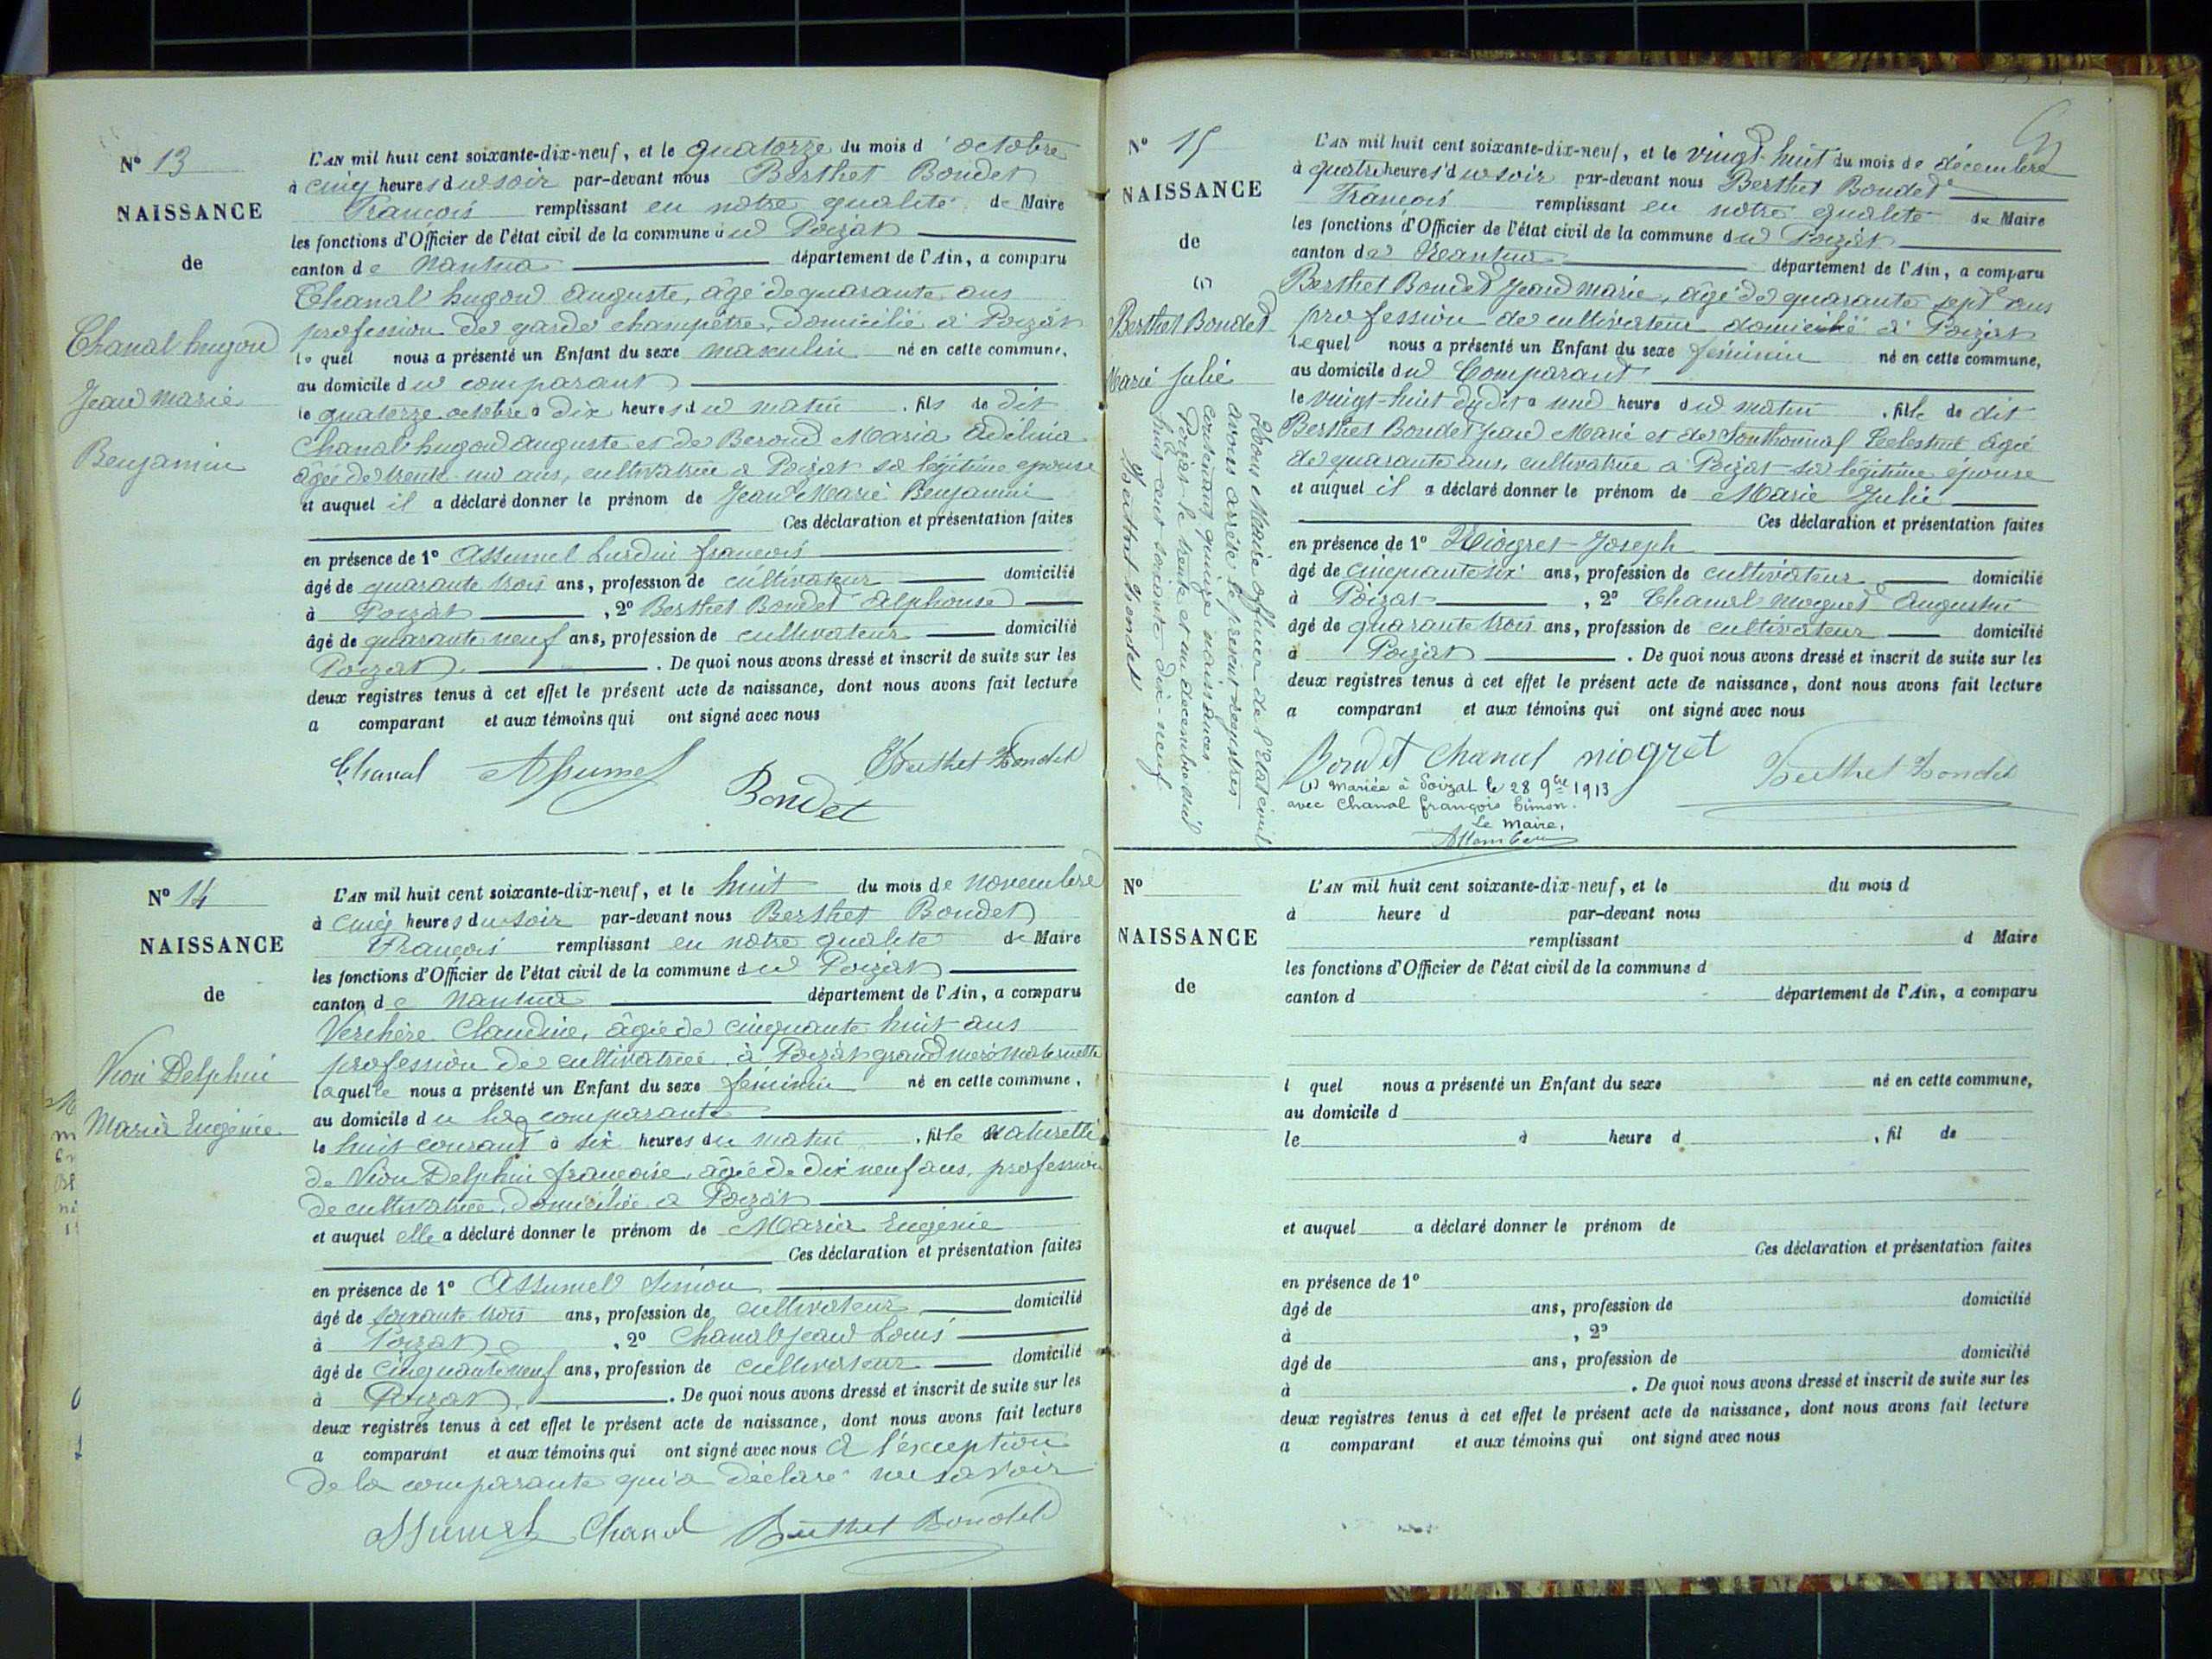 N° 13
NAISSANCE
de
Chanal hugon
Jean Marie
Benjamin
L'AN mil huit cent soixante-dix-neuf, et le quatorze du mois d'octobre
à cinq heures du soir par-devant nous Berthet Bondet
François remplissant en notre qualité de Maire
les fonctions d'Officier de l'état civil de la commune du Poizat
canton de Nantua département de l'Ain, a comparu
Chanal hugon auguste, âgé de quarante ans
profession de garde champêtre, domicilié à Poizat
lequel nous a présenté un Enfant du sexe masculin né en cette commune,
au domicile du comparant
le quatorze octobre à dix heures du matin , fils de dit
Chanal hugon auguste et de Beroud Maria Adélina
âgée de trente un ans, cultivatrice à Poizat sa légitime épouse
et auquel il a déclaré donner le prénom de Jean Marie Benjamin
Ces déclaration et présentation faites
en présence de 1° Assumel Lurdin françois
âgé de quarante trois ans, profession de cultivateur domicilié
à Poizat , 2° Berthet Bondet Alphonse
âgé de quarante neuf ans, profession de cultivateur domicilié
Poizat . De quoi nous avons dressé et inscrit de suite sur les
deux registres tenus à cet effet le présent acte de naissance, dont nous avons fait lecture
a comparant et aux témoins qui ont signé avec nous
Chanal Assumel Bondet Berthet Bondet
N° 14
NAISSANCE
de
Vion Delphin
Maria Eugénie
L'AN mil huit cent soixante-dix-neuf, et le huit du mois de novembre
à cinq heures du soir par-devant nous Berthet Bondet
François remplissant en notre qualité de Maire
les fonctions d'Officier de l'état civil de la commune du Poizat
canton de Nantua département de l'Ain, a comparu
Verchère Claudine, âgée de cinquante huit ans
profession de cultivatrice à Poizat grand mère maternelle
laquelle nous a présenté un Enfant du sexe féminin né en cette commune,
au domicile de la comparante
le huit courant à six heures du matin , fille naturelle
de Vion Delphin françoise, âgée de dix neuf ans, profession
de cultivatrice, domiciliée à Poizat
et auquel elle a déclaré donner le prénom de Maria Eugénie
Ces déclaration et présentation faites
en présence de 1° Assumel Simon
âgé de soixante trois ans, profession de cultivateur domicilié
à Poizat , 2° Chanal Jean Louis
âgé de cinquante neuf ans, profession de cultivateur domicilié
à Poizat . De quoi nous avons dressé et inscrit de suite sur les
deux registres tenus à cet effet le présent acte de naissance, dont nous avons fait lecture
a comparant et aux témoins qui ont signé avec nous à l'exception
de la comparante qui a déclaré ne savoir
Assumel Chanal Berthet Bondet
N° 15
NAISSANCE
de
(1)
Berthet Bondet
Marie Julie
L'AN mil huit cent soixante-dix-neuf, et le vingt-huit du mois de décembre
à quatre heures du soir par-devant nous Berthet Bondet
François remplissant en notre qualité de Maire
les fonctions d'Officier de l'état civil de la commune du Poizat
canton de Nantua département de l'Ain, a comparu
Berthet Bondet Jean Marie, âgé de quarante sept ans
profession de cultivateur domicilié à Poizat
lequel nous a présenté un Enfant du sexe féminin né en cette commune,
au domicile du Comparant
le vingt-huit dudit à une heure du matin , fille de dit
Berthet Bondet Jean Marie et de Sonthonnas Celestine âgée
de quarante ans, cultivatrice à Poizat sa légitime épouse
et auquel il a déclaré donner le prénom de Marie Julie
Ces déclaration et présentation faites
en présence de 1° Niogret Joseph
âgé de cinquante six ans, profession de cultivateur domicilié
à Poizat , 2° Chanal moquet Augustin
âgé de quarante trois ans, profession de cultivateur domicilié
à Poizat . De quoi nous avons dressé et inscrit de suite sur les
deux registres tenus à cet effet le présent acte de naissance, dont nous avons fait lecture
a comparant et aux témoins qui ont signé avec nous
Bondet Chanal niogret Berthet Bondet
(1) Mariée à Poizat le 28 9bre 1913
avec Chanal françois Simon.
Le Maire,
Nous Maire officier de l'Etat civil
avons arrêté le présent registres
contenant quinze naissances
Poizat le trente et un décembre mil
huit cent soixante dix-neuf
Berthet Bondet
N°
NAISSANCE
de
L'AN mil huit cent soixante-dix-neuf, et le du mois d
à heure d par-devant nous
remplissant d Maire
les fonctions d'Officier de l'état civil de la commune d
canton d département de l'Ain, a comparu
l quel nous a présenté un Enfant du sexe né en cette commune,
au domicile d
le à heure d , fil de
et auquel a déclaré donner le prénom de
Ces déclaration et présentation faites
en présence de 1°
âgé de ans, profession de domicilié
à , 2°
âgé de ans, profession de domicilié
à . De quoi nous avons dressé et inscrit de suite sur les
deux registres tenus à cet effet le présent acte de naissance, dont nous avons fait lecture
a comparant et aux témoins qui ont signé avec nous